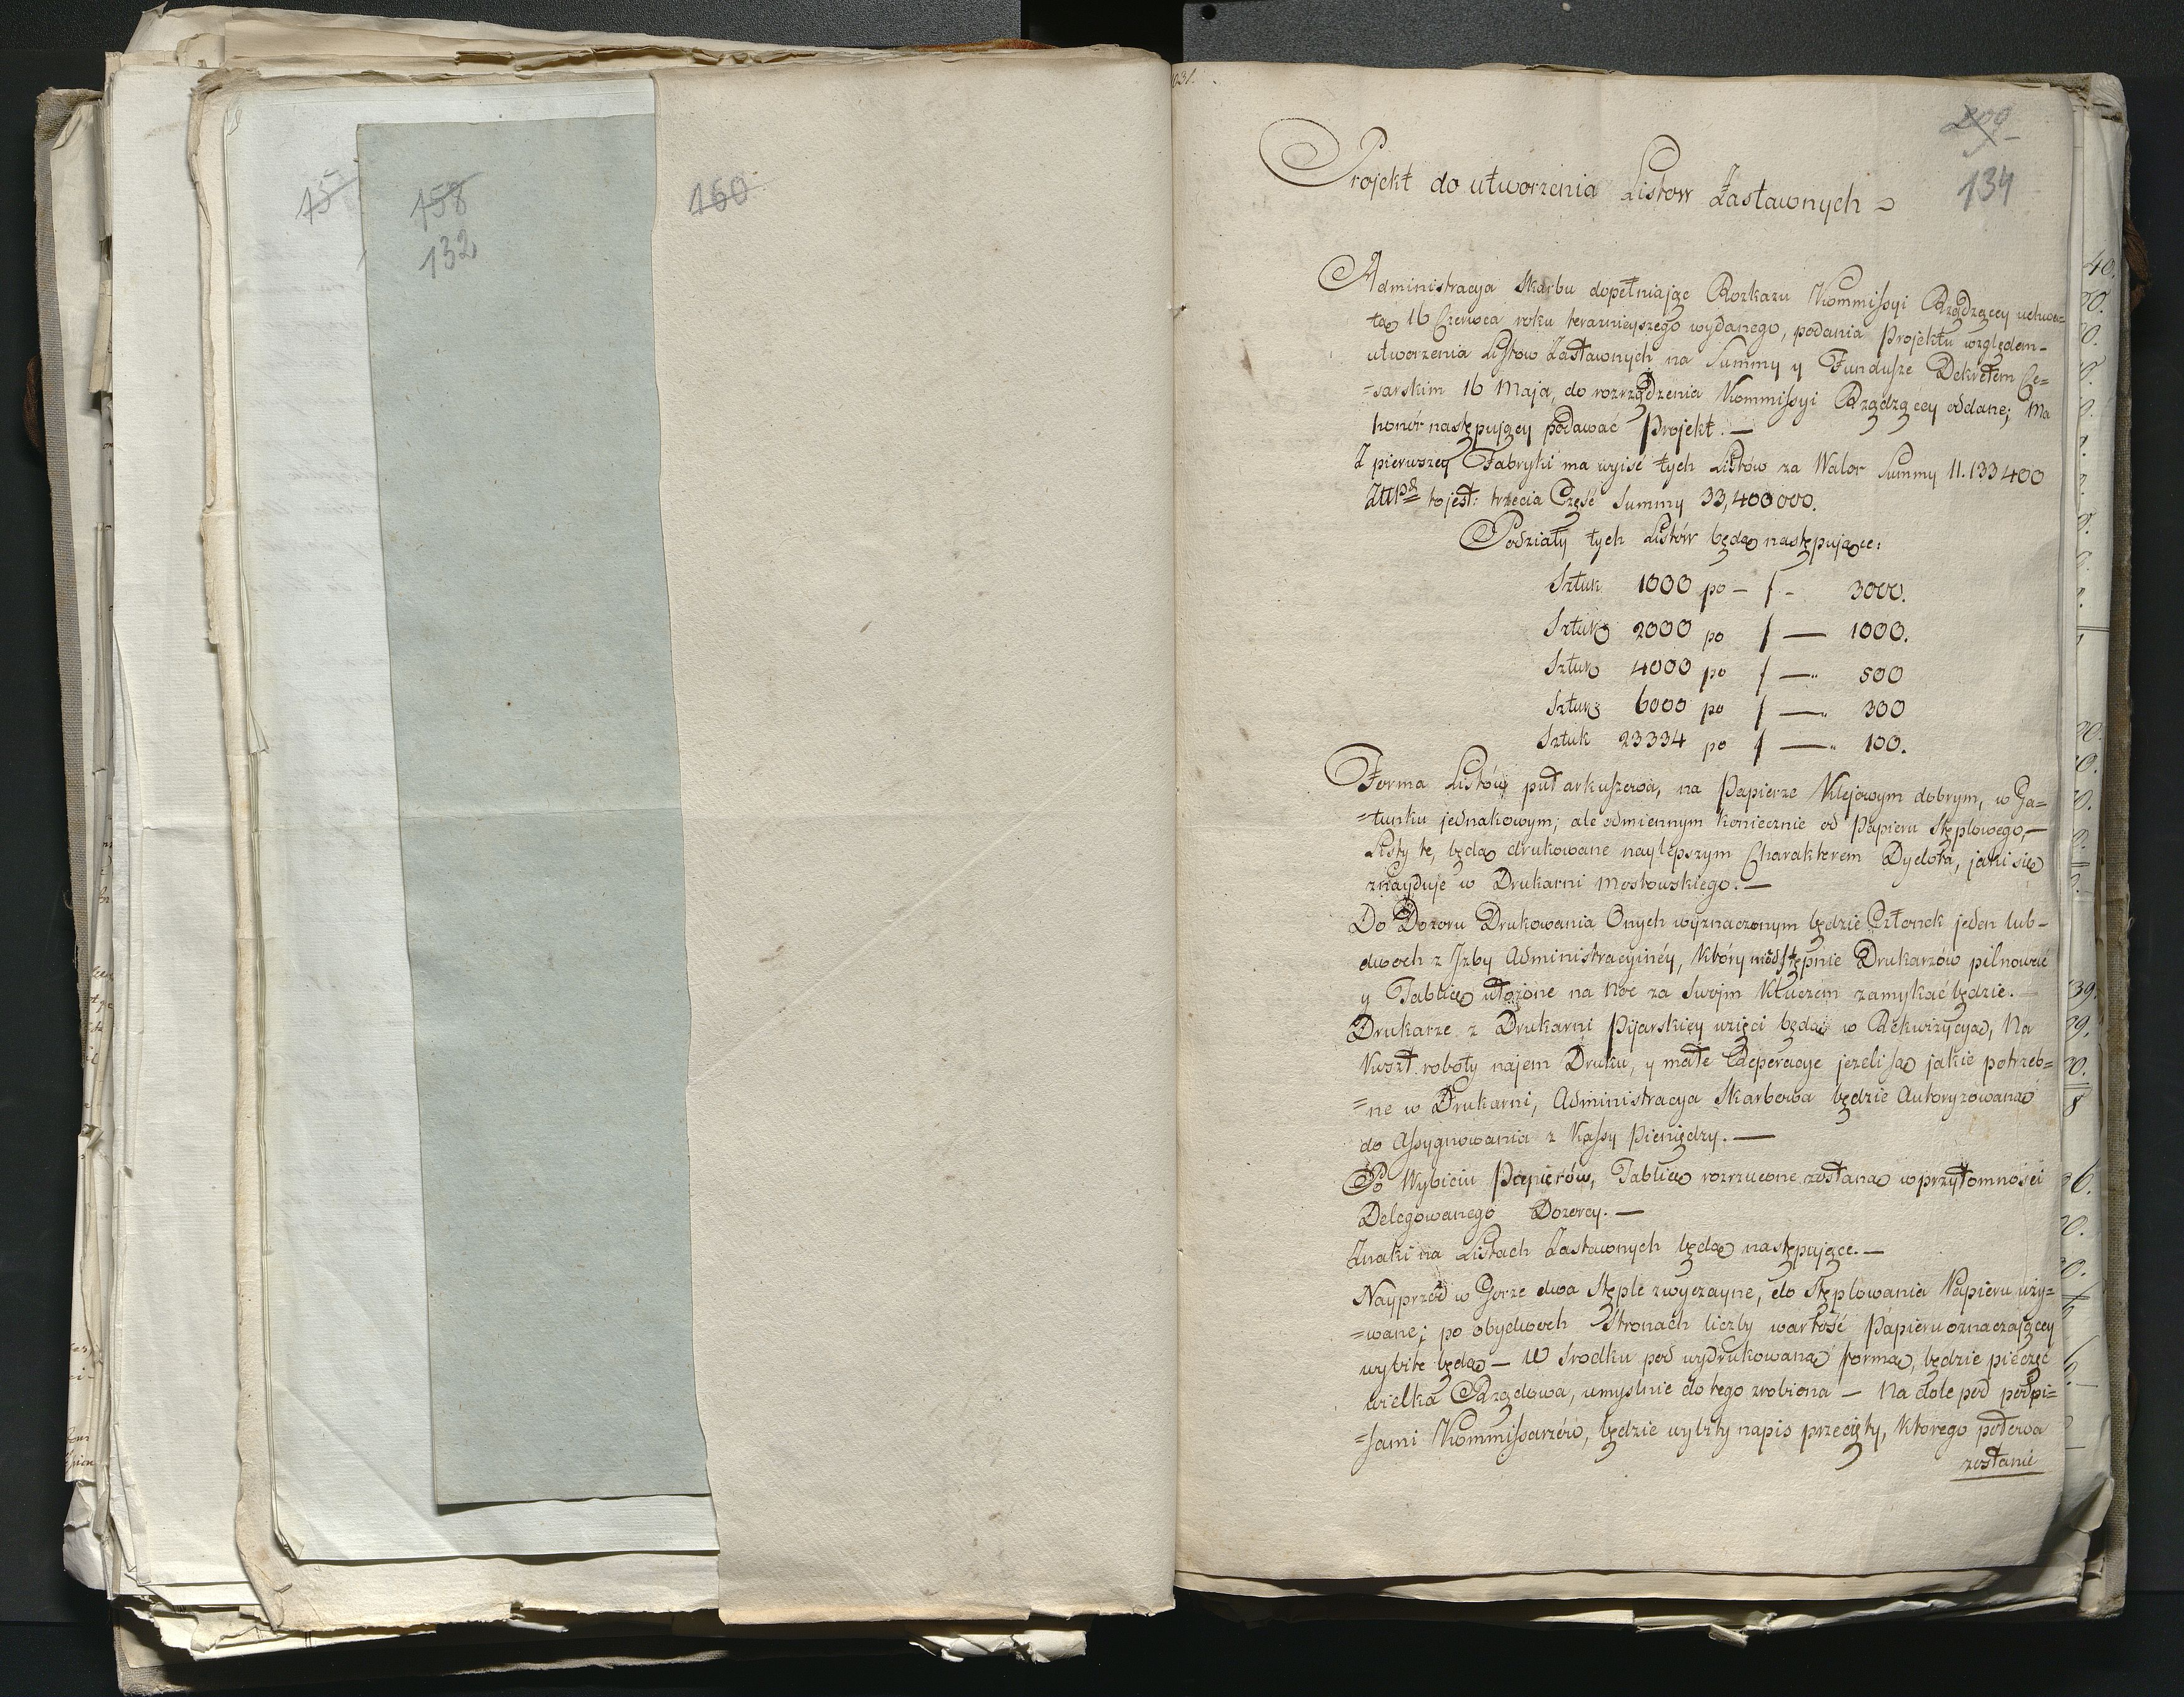 15
158
132
160
031.
209
134
Projekt do utworzenia Listow Zastawnych
Administracya Skarbu dopełniaiąc Rozkazu Kommissyi Rządzącey uchwa=
łą 16 Czerwca roku teraznieyszego wydanego, podania Projektu względem
utworzenia Listow Zastawnych na Summy y Fundusze Dekretem Ce=
=sarskim 16 Maja, do rozrządzenia Kommissyi Rządzącey oddane; Ma
honór następujący podawać Projekt. —
Z pierwszey Fabryki ma wyisć tych Listów za Walor Summy 11.133400
to jest: trzecia Część Summy 33,400000.
Podziały tych Listów będą następujące:
Sztuk 1000 po — f - 3000.
Sztuk 2000 po f — 1000.
Sztuk 4000 po f — 500
Sztuk 6000 po f — 300
Sztuk 23334 po f — 100.
Forma Listów puł arkuszowa, na Papierze Klejowym dobrym, w Ga=
=tunku jednakowym; ale odmiennym koniecznie od Papieru Stęplowego, —
Listy te, będą drukowane naylepszym Charakterem Dydota, jaki się
znayduje w Drukarni Mostowskiego. —
Do Dozoru Drukowania Onych wyznaczonym będzie Członek jeden lub —
dwóch z Izby Administracyinéy, który nieodstępnie Drukarzów pilnować
y Tablice ułożone na Noc za Swojm Kluczem zamykać będzie. —
Drukarze z Drukarni Pijarskiey wzięci będą w Rekwizycyą, Na
Kuszt roboty najem Druku, y małe Reperacye jezeli są jakie potrzeb=
=ne w Drukarni, Administracya Skarbowa będzie Autoryzowaną
do Assygnowania z Kassy Pieniędzy. —
Po Wybiciu Papierów, Tablice rozrzucone zostaną w przytomnosci
Delegowanego Dozorcy. —
Znaki na Listach Zastawnych będą następujące. —
Nayprzod w Gorze dwa Stęple zwyczayne, do Stęplowania Papieru uży=
=wane; po obydwoch Stronach liczby wartość Papieru oznaczającey
wybite będą — W Srodku pod wydrukowaną formą, będzie pieczęć
wielka Rządowa, umyslnie do tego zrobiona — Na dole pod podpi=
=sami Kommissarzów, będzie wybity napis przecięty, ktorego połowa
zostanie